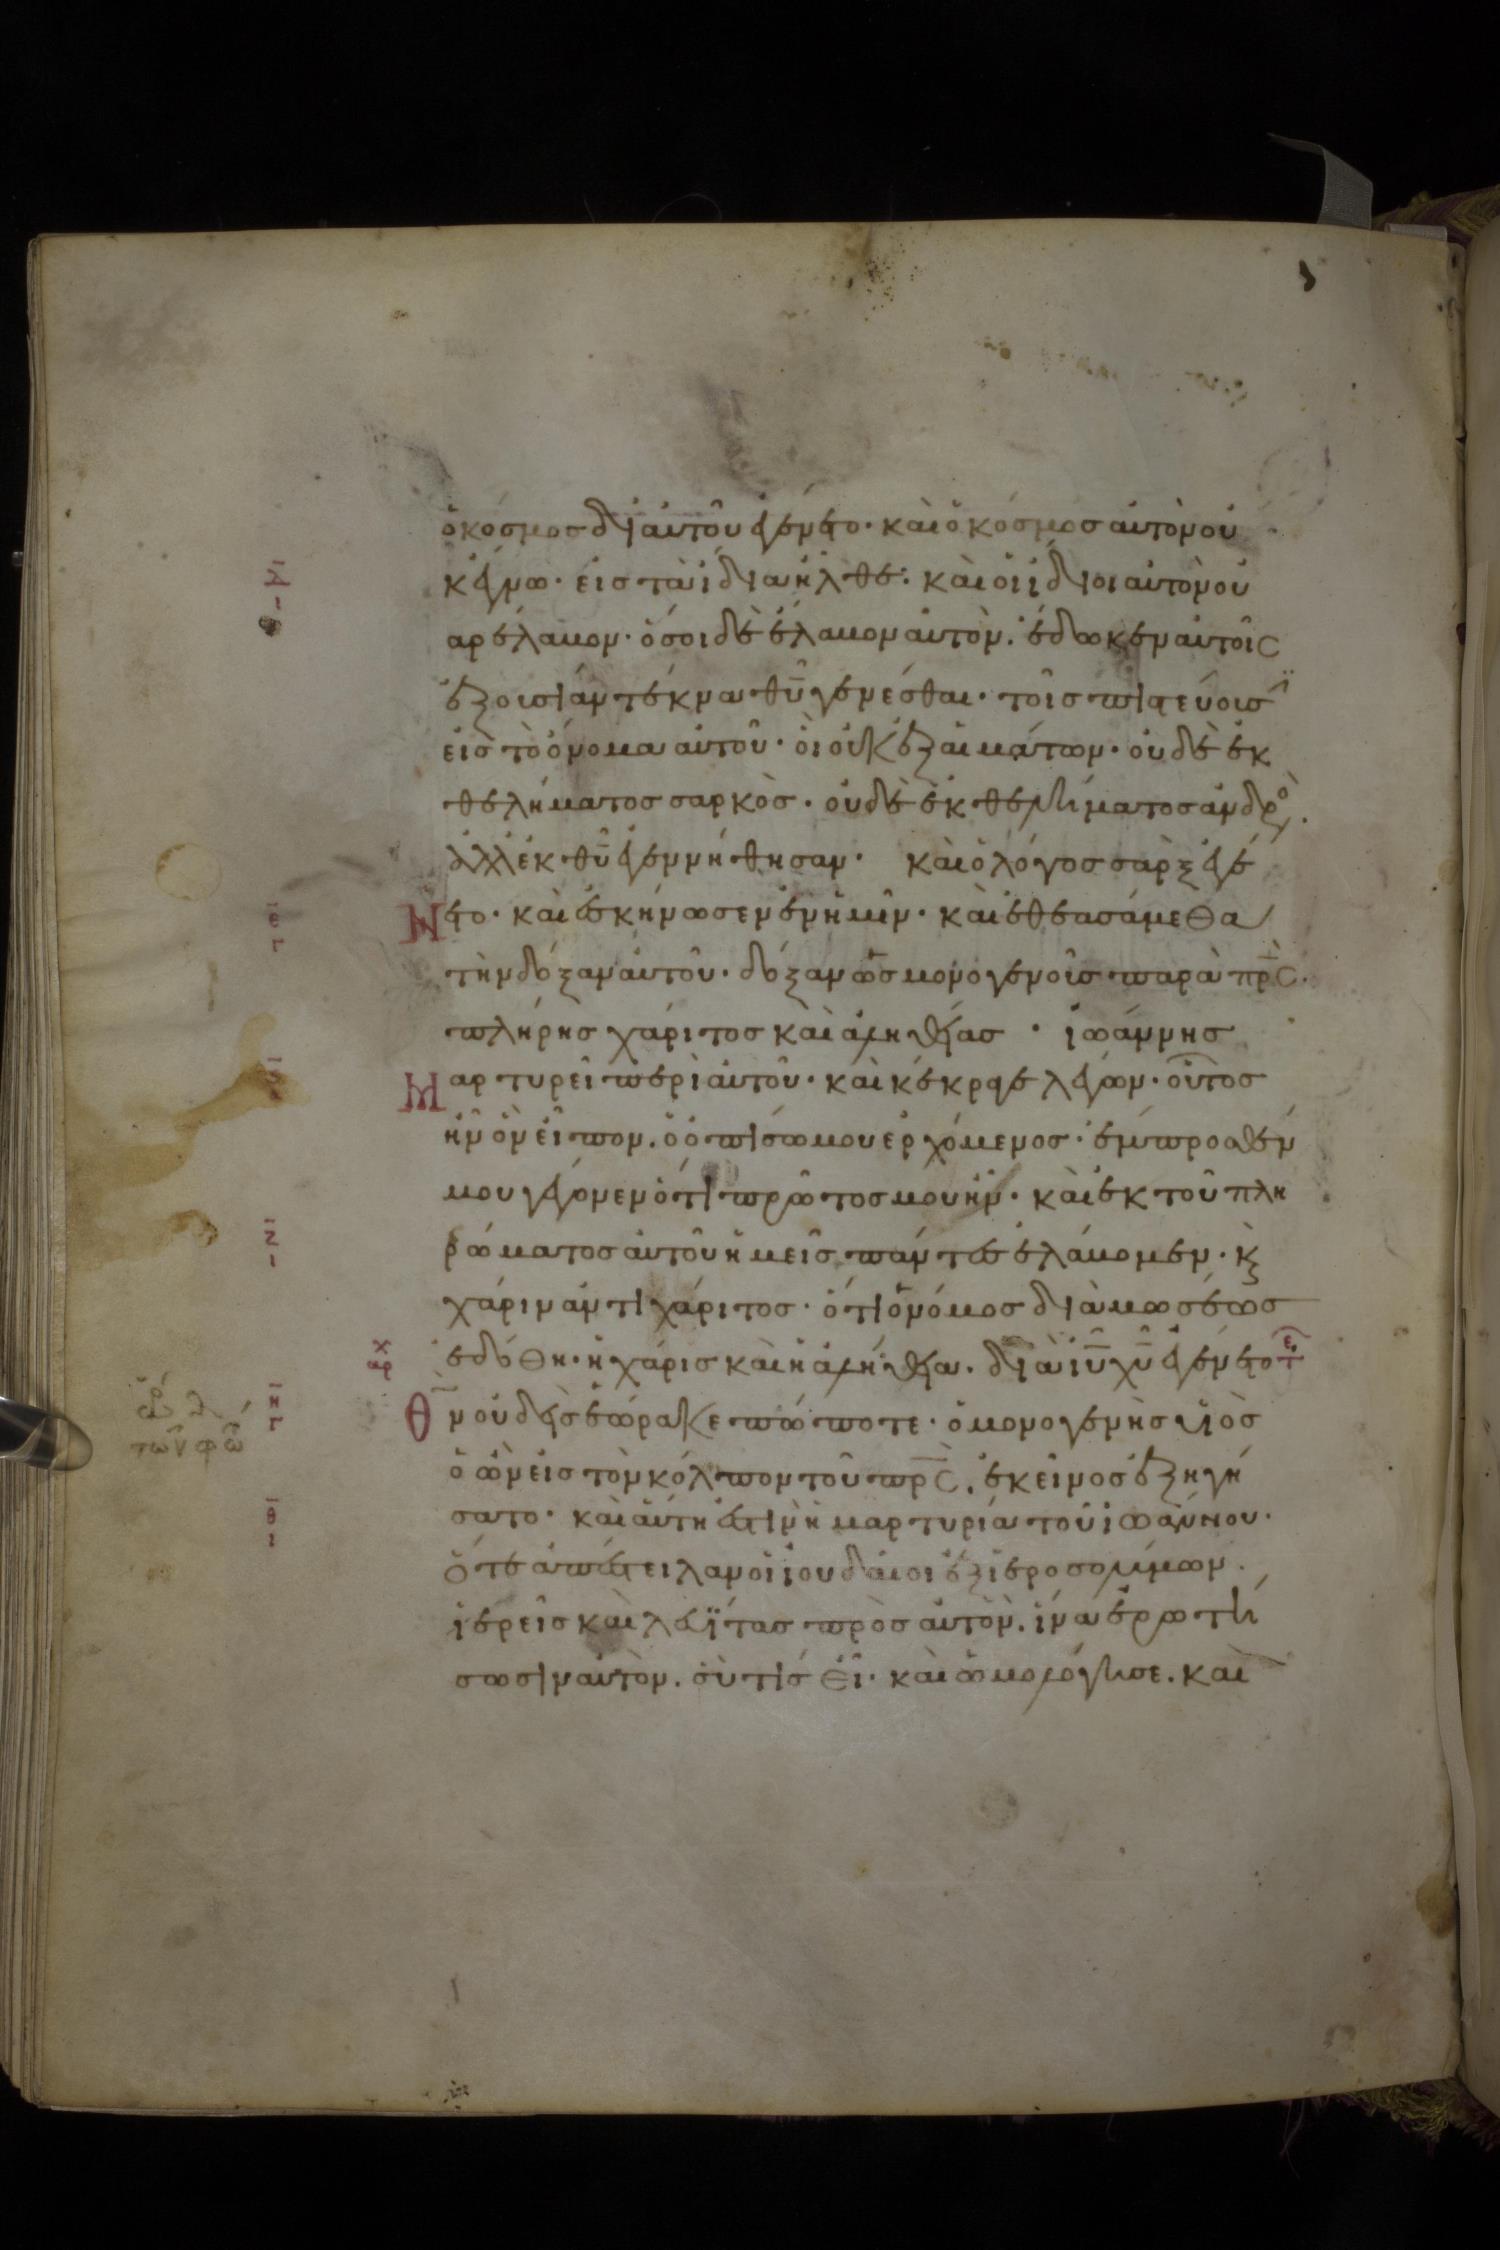 ὁ κόσμος δι αὐτοῦ ἐγένετο· καὶ ὁ κόσμος αὐτὸν οὐ
κ ἔγνω· εἰς τὰ ἴδια ἦλθε· καὶ οἱ ἴδιοι αὐτὸν οὐ
παρέλαβον· ὅσοι δὲ ἔλαβον αὐτὸν. ἔδωκεν αὐτοῖς
ἐξουσίαν τέκνα θῦ γενέσθαι· τοῖς πιστεύουσιν
εἰς τὸ ὄνομα αὐτοῦ· οἳ οὐκ ἐξ αἱμάτων· οὐδὲ ἐκ
θελήματος σαρκὸς· οὐδὲ ἐκ θελήματος ἀνδρὸς.
ἀλλ ἐκ θῦ ἐγεννήθησαν· καὶ ὁ λόγος σὰρξ ἐγέ
Νετο· καὶ ἐσκήνωσεν ἐν ἡμῖν· καὶ ἐθεασάμεθα
τὴν δόξαν αὐτοῦ· δόξαν ὡς μονογενοῦς παρὰ πρς.
πλήρης χάριτος καὶ ἀληθείας · ἰωάννης
Μαρτυρεῖ περὶ αὐτοῦ· καὶ κέκραγε λέγων· οὗτος
ἦν ὃν εἶπον. ὁ ὀπίσω μου ἐρχόμενος· ἔμπροσθέν
μου γέγονεν ὅτι πρῶτος μου ἦν· καὶ ἐκ τοῦ πλη
ρώματος αὐτοῦ ἡμεῖς πάντες ἐλάβομεν· κ
χάριν ἀντὶ χάριτος· ὅτι ὁ νόμος διὰ μωσέως
ἐδόθη· ἡ χάρις καὶ ἡ ἀλήθεια. διὰ ἰῦ χῦ ἐγένετο τε
Θν οὐδεὶς ἑώρακε πώποτε· ὁ μονογενὴς υἱὸς
ὁ ὢν εἰς τὸν κόλπον τοῦ πρς. ἐκεῖνος ἐξηγή
σατο· καὶ αὕτη ἐστὶν ἡ μαρτυρία τοῦ ἰωάννου·
Ὅτε ἀπέστειλαν οἱ ἰουδαῖοι ἐξ ἱεροσολύμων.
ἱερεῖς καὶ λευΐτας πρὸς αὐτὸν. ἵνα ἐρωτή
σωσιν αὐτὸν. σὺ τίς εἶ· καὶ ὡμολόγησε. καὶ